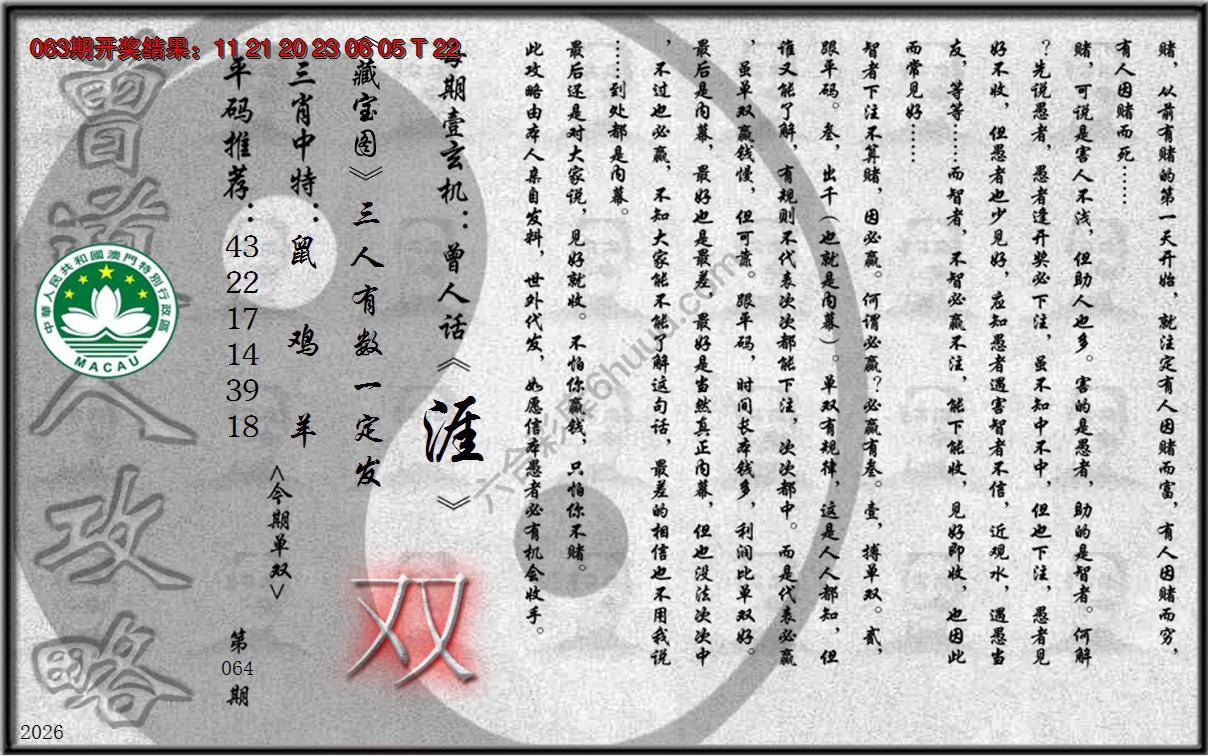 063期开奖结果：11 21 20 23 06 05 T 22
赌，从前有赌的第一天开始，就注定有人因赌而富，有人因赌而穷，
有人因赌而死……
赌，可说是害人不浅，但助人也多。害的是愚者，助的是智者。何解
？先说愚者，愚者逢开奖必下注，虽不知中不中，但也下注，愚者见
好不收，但愚者也少见好，应知愚者遇害智者不信，近观水，遇愚当
友，等等……而智者，不智必赢不注，能下能收，见好即收，也因此
而常见好……
智者下注不算赌，因必赢。何谓必赢？必赢有叁。壹，搏单双。贰，
跟平码。叁，出千（也就是内幕）。单双有规律，这是人人都知，但
谁又能了解，有规则不代表次次都能下注，次次都中。而是代表必赢
，虽单双赢钱慢，但可靠。跟平码，时间长本钱多，利润比单双好。
最后是内幕，最好也是最差，最好是当然真正内幕，但也没法次次中
，不过也必赢，不知大家能不能了解这句话，最差的相信也不用我说
……到处都是内幕。
最后还是对大家说，见好就收。不怕你赢钱，只怕你不赌。
此攻略由本人亲自发料，世外代发，如愿信本愚者必有机会收手。
每期壹玄机：曾人话《涯》
《藏宝图》三人有数一定发
三肖中特：鼠 鸡 羊
平码推荐：43 22 17 14 39 18
<今期单双>
双
第064期
曾道人攻略
中華人民共和國澳門特別行政區
MACAU
六合彩票6huuu.com
2026